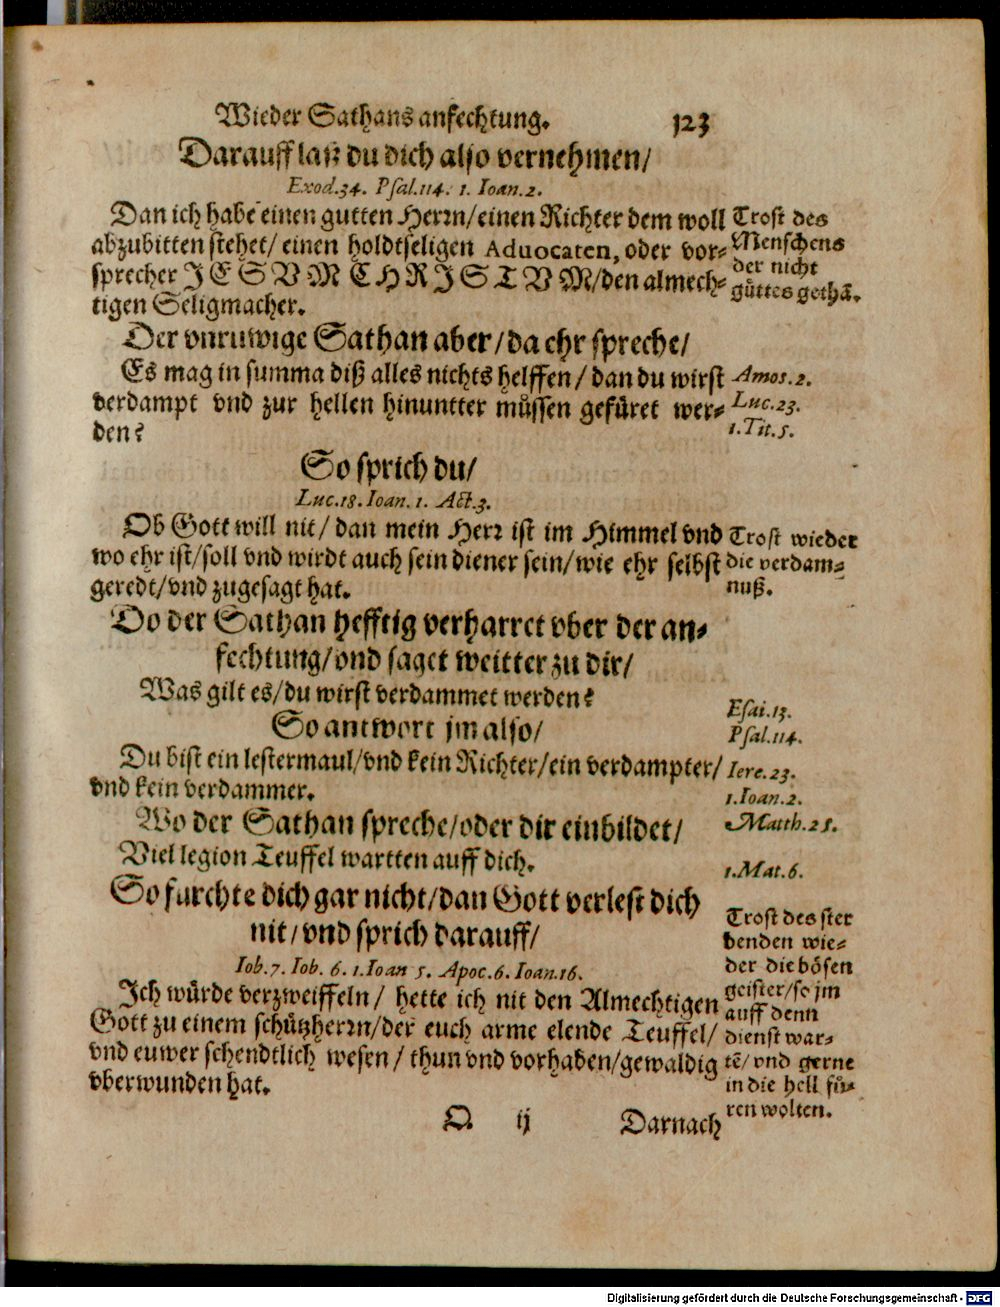 Wieder Sathans anfechtung. 123
Darauff laß du dich also vernehmen/
Exod.34. Psal.114. 1. Ioan.2.
Dan ich habe einen gutten Herrn/einen Richter dem woll
abzubitten stehet/ einen holdtseligen Aduocaten, oder vor-
sprecher JESVM CHRJSTVM/den almech-
tigen Seligmacher.
Trost des
Menschens
der nicht
guttes gethã.
Der vnruwige Sathan aber/da ehr spreche/
Es mag in summa diß alles nichts helffen/ dan du wirst
verdampt vnd zur hellen hinuntter můssen gefůret wer-
den?
Amos.2.
Luc.23.
1.Tit.5.
So sprich du/
Luc.18.Ioan.1. Act.3.
Ob Gott will nit/ dan mein Herr ist im Himmel vnd
wo ehr ist/soll vnd wirdt auch sein diener sein/wie ehr selbst
geredt/vnd zugesagt hat.
Trost wieder
die verdam-
nuß.
Do der Sathan hefftig verharret vber der an-
fechtung/vnd saget weitter zu dir/
Was gilt es/du wirst verdammet werden?
So antwort jm also/
Du bist ein lestermaul/vnd kein Richter/ein verdampter/
vnd kein verdammer.
Esai.13.
Psal.114.
Iere.23.
1.Ioan.2.
Matth.25.
Wo der Sathan spreche/oder dir einbildet/
Viel legion Teuffel wartten auff dich.
1.Mat.6.
So furchte dich gar nicht/dan Gott verlest dich
nit/vnd sprich darauff/
Iob.7. Iob. 6. 1.Ioan 5. Apoc.6. Ioan.16.
Ich wůrde verzweiffeln/ hette ich nit den Almechtigen
Gott zu einem schůtzherrn/der euch arme elende Teuffel/
vnd euwer schendtlich wesen/ thun vnd vorhaben/gewaldig
vberwunden hat.
Trost des ster
benden wie-
der die bösen
geister/so jm
auff denn
dienst war-
tẽ/ vnd gerne
in die hell fů-
ren wolten.
Q ij Darnach
Digitalisierung gefördert durch die Deutsche Forschungsgemeinschaft - DFG